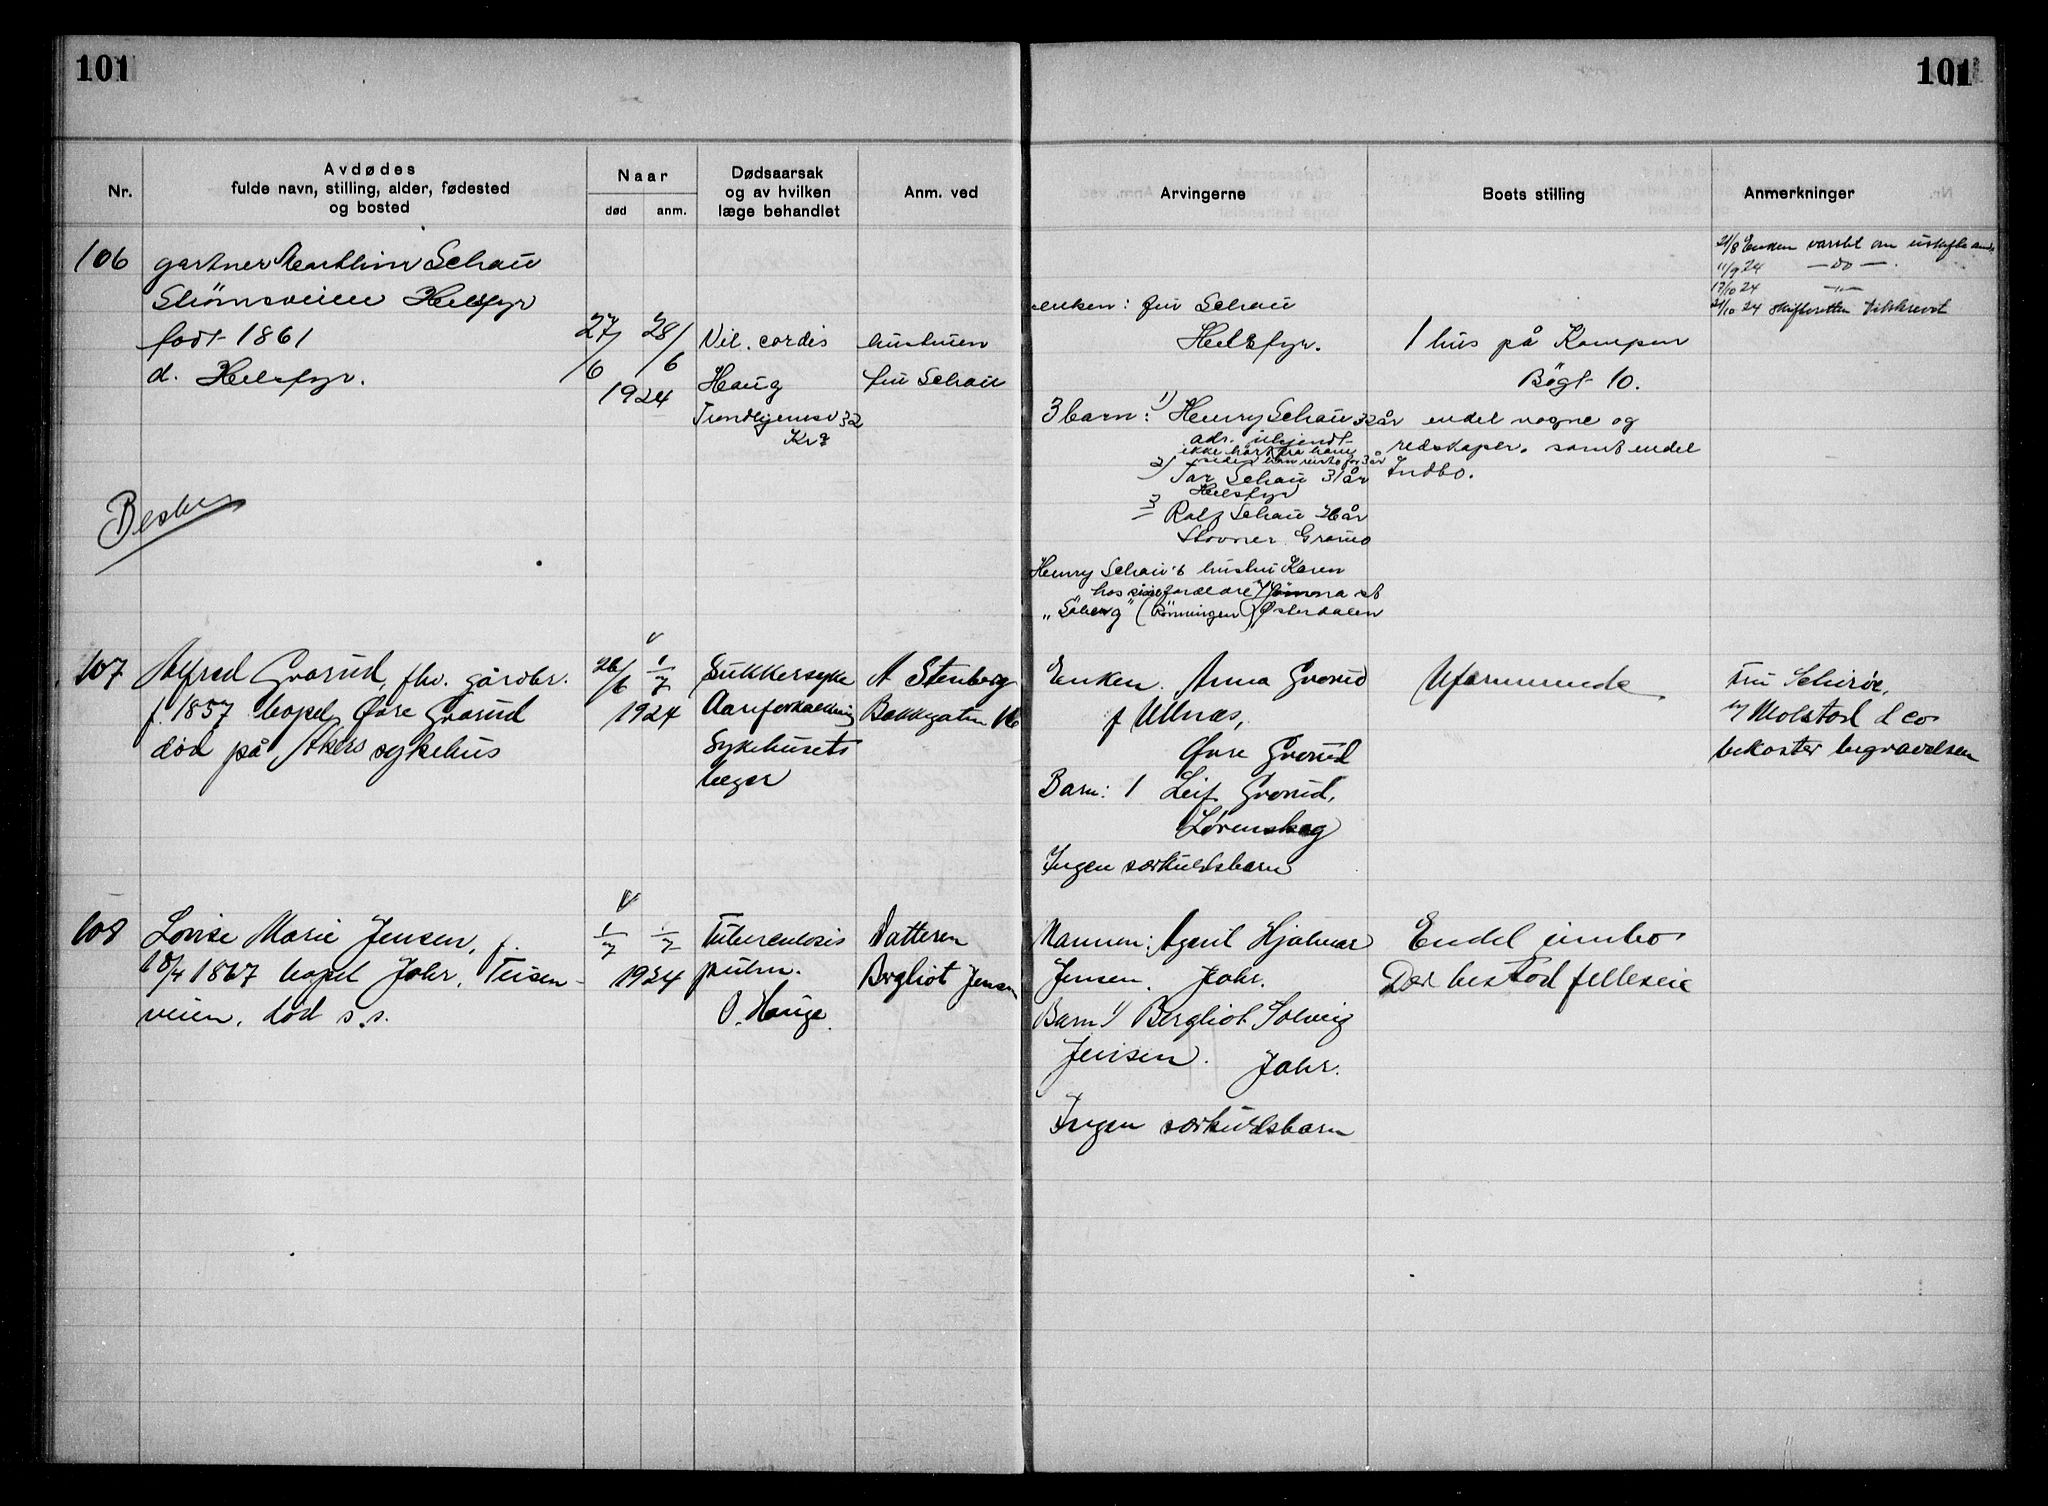 101
101
Nr.
Avdødes
fulde navn, stilling, alder, fødested
og bosted
Naar
død
anm.
Dødsaarsak
og av hvilken
læge behandlet
Anm. ved
Arvingerne
Boets stilling
Anmerkninger
106
gartner Schau
Strømsveien Helsfyr
født 1861
d. Helsfyr.
27/6 28/6
1924
Vit. cordis
Haug
Trondhjemsv 32
Kr.a
hustruen
fru Schau
enken: fru Schau
Helsfyr.
3 barn: 1) Henry Schau 32 år
adr. ukjendt
ikke hørt fra ham
siden han reiste for 3 år
2) Schau 31 år
Helsfyr
3 Rolf Schau år
Stovner Grorud
Henry Schau's hustru Karen
hos sine forældre st
"Söberg" (Rönningen) Østerdalen
1 hus på Kampen
Bøgt 10.
endel vogne og
redskaper. samt endel
Indbo.
21/8 Enken varslet om
11/9 24 —do—.
17/10 24 —"—
21/10 24 skifteretten
107
Alfred Grorud, fhv. gårdbr.
f. 1857 bopel Øvre Grorud
død på Akers sykehus
26/6 1/7
1924
Sukkersyke
Aareforkalkning
Sykehusets
læger
A Stenberg
Bakkgaten 16
Enken. Anna Grorud
f Ullnæs,
Øvre Grorud
Barn: 1 Leif Grorud,
Lørenskog
Ingen særkuldsbarn
Uformuende
Fru Schirøe,
Molstad & co
bekoster begravelsen
108
Lovise Marie Jensen, f.
18/4 1867 bopel Johr. Teisen-
veien, død s.s.
1/7 1/7
1924
Tuberculosis
pulm.
O. Hauge.
Datteren
Bergliot Jensen
Mannen: Agent Hjalmar
Jensen. Johr.
Barn 1) Bergliot Solveig
Jensen. Johr.
Ingen særkuldsbarn
Endel innbo
Der bestod felleseie